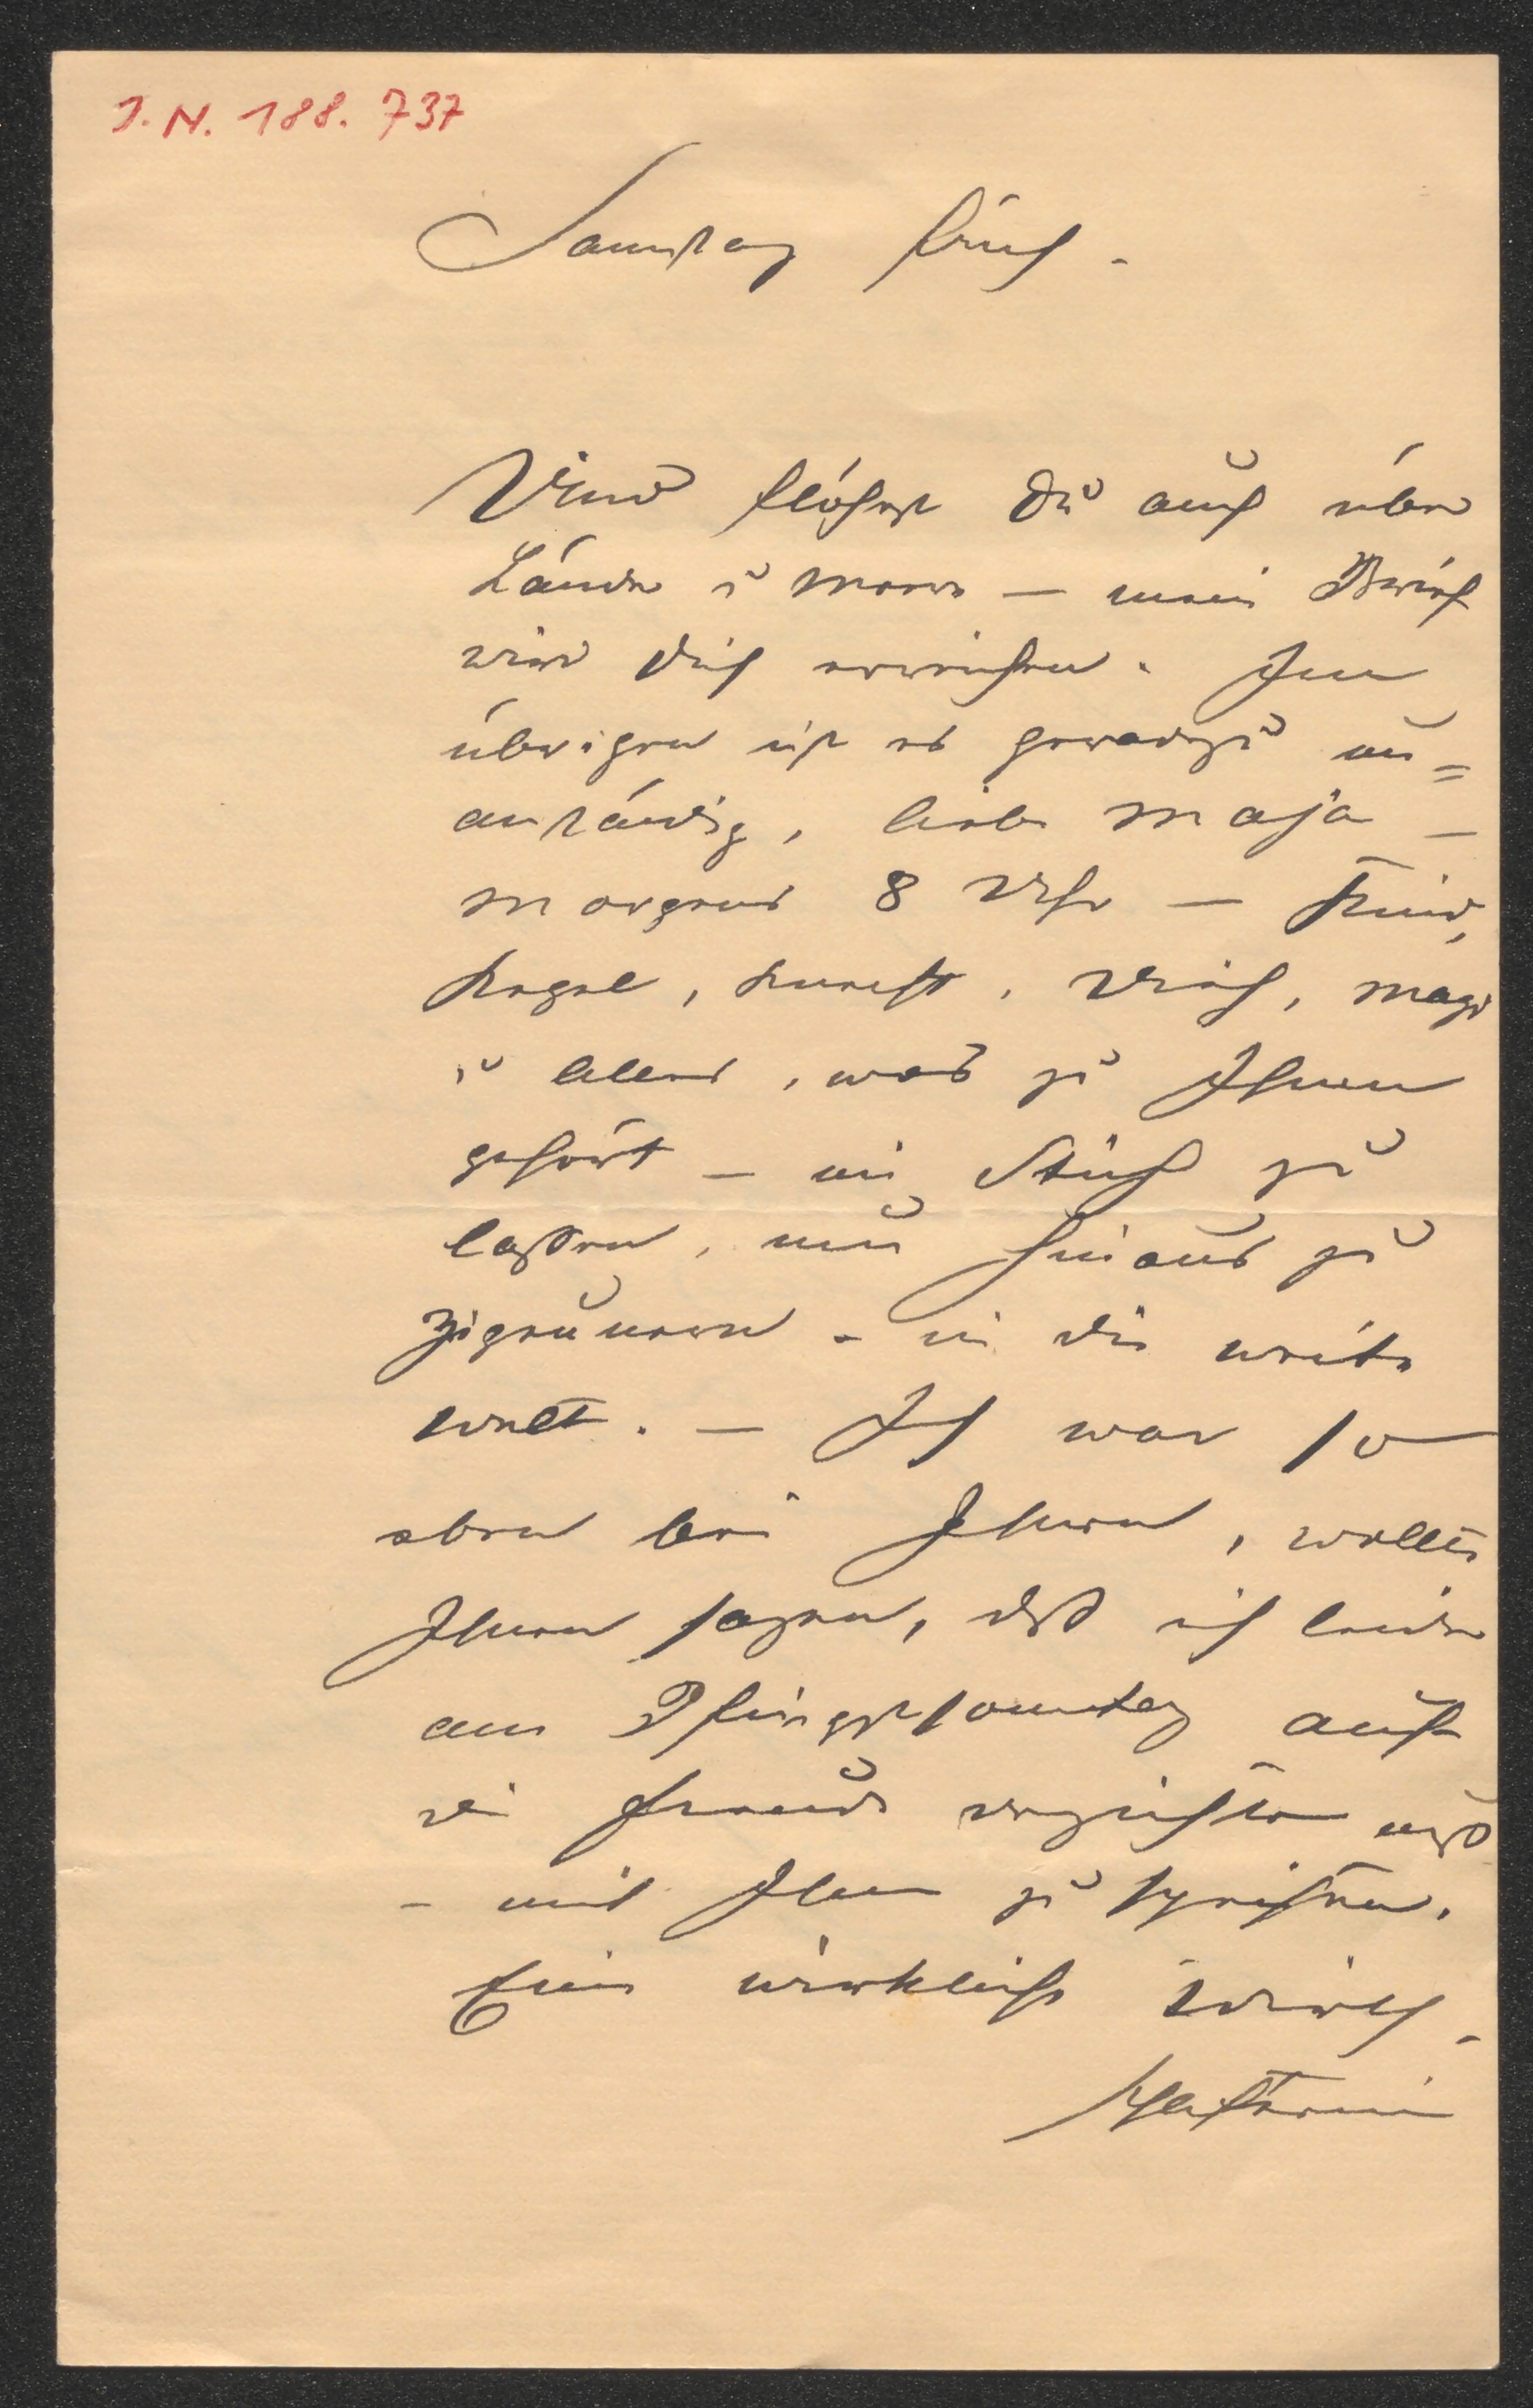 J. N. 188. 737
Samstag früh.
Und flöhest Du auch über
Länder u Meere — mein Brief
wird dich erreichen. Im
übrigen ist es geradezu un=
anständig, liebe Maja —
morgens 8 Uhr — Kind,
Kegel, Knecht, Vieh, Magd
u alles, was zu Ihnen
gehört — im Stich zu
lassen, um hinaus zu
zigeunern – in die weite
Welt. — Ich war so
eben bei Ihnen, wollte
Ihnen sagen, daß ich leider
am Pfingstsonntag auf
die Freude verzichten muß
– mit Ihnen zu speisen.
Ein wirklich